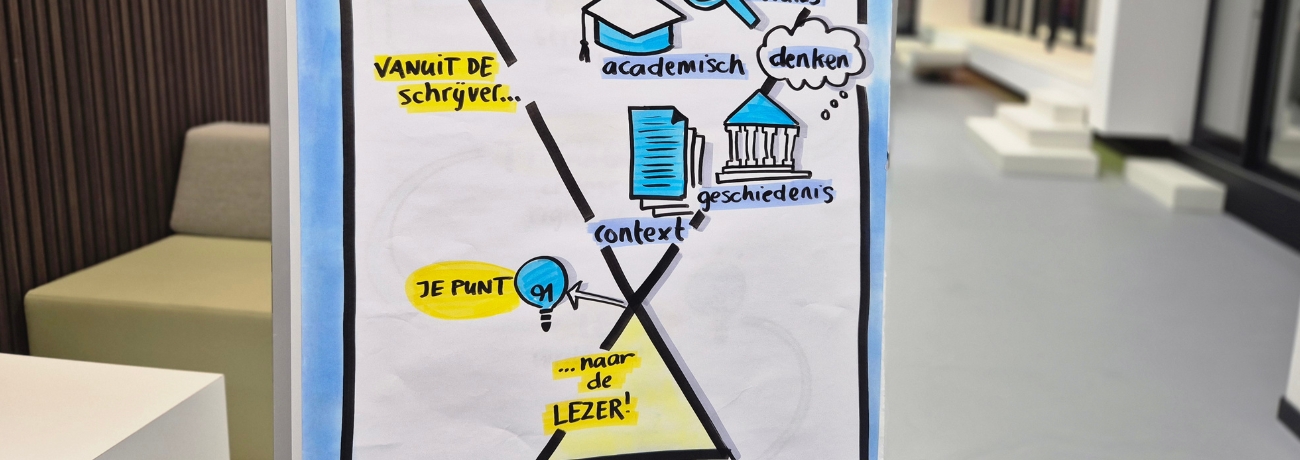 academisch
denken
VANUIT DE
schrijver...
geschiedenis
context
JE PUNT
... naar
de
LEZER!